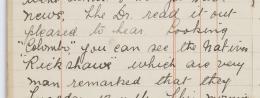 news. The Dr. read it out
pleared to hear. Looking
"Colombo" you can see the natives
"Rickshaws" which are very
man remarked that they